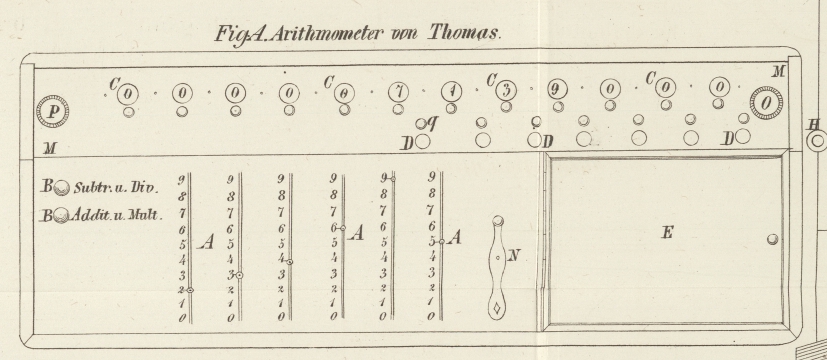 Fig. 4. Arithmometer von Thomas.
C C C C M
P 0 0 0 0 0 7 1 3 9 0 0 0 O
q H
D D D
M
B Subtr. u. Div. 9 9 9 9 9 9
8 8 8 8 8 8
B Addit. u. Mult. 7 7 7 7 7 7
6 6 6 6 6 6
5 A 5 5 5 A 5 5 A E
4 4 4 4 4 4 N
3 3 3 3 3 3
2 2 2 2 2 2
1 1 1 1 1 1
0 0 0 0 0 0